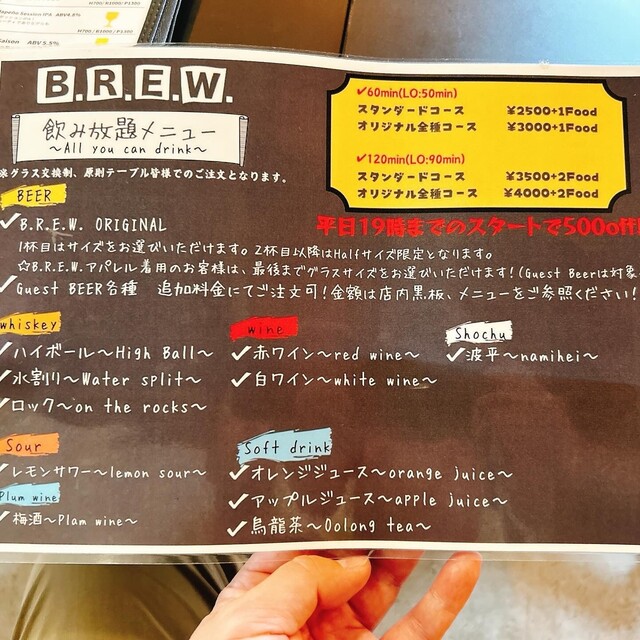 Session IPA ABV4.8%
H700/ R1000/ P1350
Saison ABV 5.5%
H700/ R1000 / P1350
B.R.E.W.
飲み放題メニュー
〜All you can drink〜
※グラス交換制、原則テーブル皆様でのご注文となります。
✓60min(LO:50min)
スタンダードコース ¥2500+1Food
オリジナル全種コース ¥3000+1Food
✓120min(LO:90min)
スタンダードコース ¥3500+2Food
オリジナル全種コース ¥4000+2Food
平日19時までのスタートで500off!
BEER
✓B.R.E.W. ORIGINAL
1杯目はサイズをお選びいただけます。2杯目以降はHalfサイズ限定となります。
☆B.R.E.W.アパレル着用のお客様は、最後までグラスサイズをお選びいただけます!(Guest Beerは対象
✓Guest BEER各種 追加料金にてご注文可!金額は店内黒板、メニューをご参照ください!
whiskey
✓ハイボール〜High Ball〜
✓水割り〜Water split〜
✓ロック〜on the rocks〜
wine
✓赤ワイン〜red wine〜
✓白ワイン〜white wine〜
Shochu
✓波平〜namihei〜
Sour
✓レモンサワー〜lemon sour〜
Plum wine
✓梅酒〜Plam wine〜
Soft drink
✓オレンジジュース〜orange juice〜
✓アップルジュース〜apple juice〜
✓烏龍茶〜Oolong tea〜